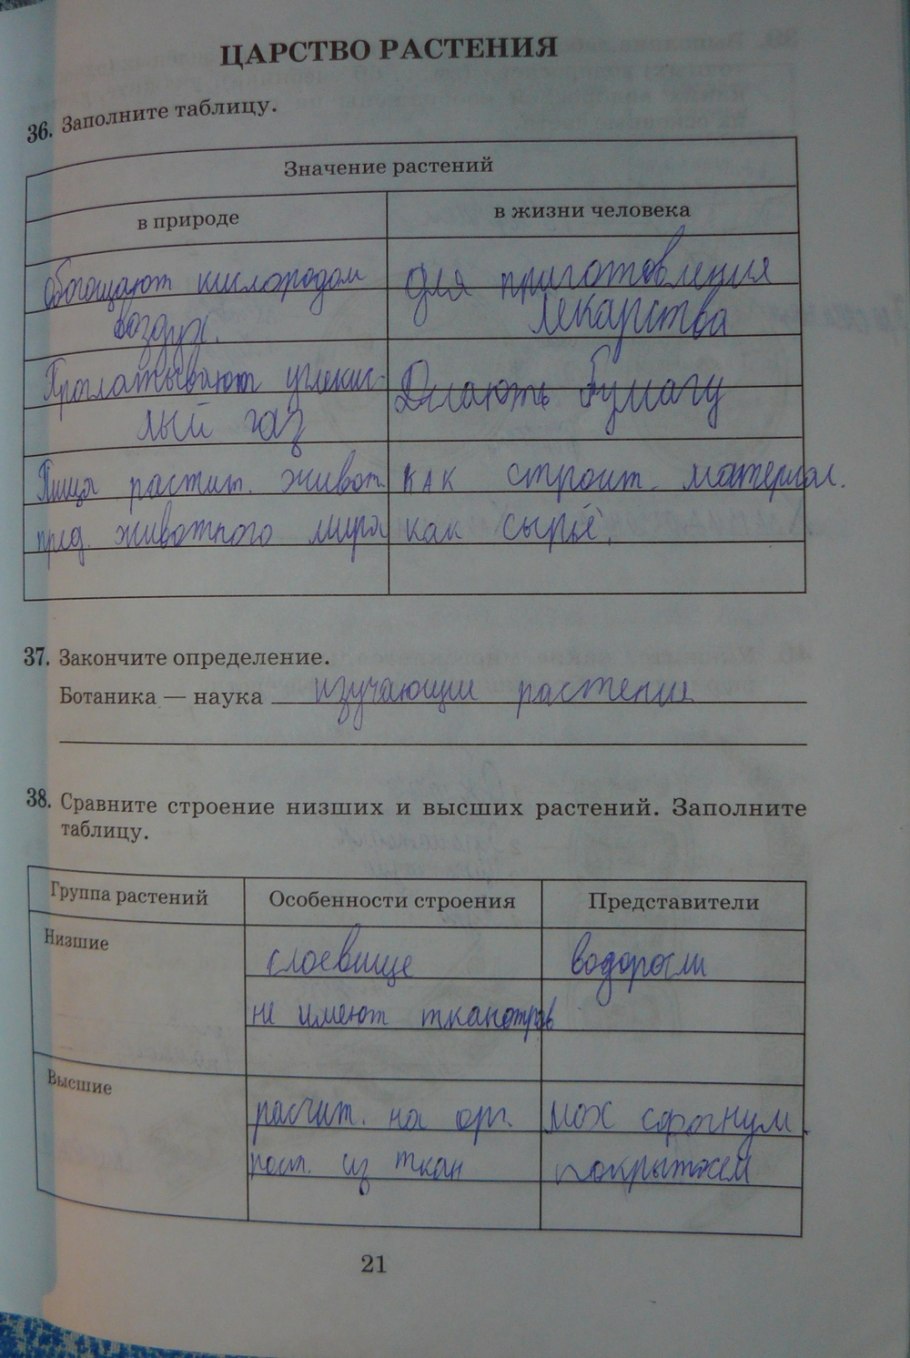 ЦАРСТВО РАСТЕНИЯ
36. Заполните таблицу.
Значение растений
в природе
в жизни человека
обогощают кислородом
воздух.
Проглатывают углекис-
лый газ
Пища растит. живот.
пред. животного мира
для приготовления
лекарства
Делають бумагу
как строит. материал.
как сырьё.
37. Закончите определение.
Ботаника — наука изучающие растение
38. Сравните строение низших и высших растений. Заполните
таблицу.
Группа растений
Особенности строения
Представители
Низшие
слоевище
водоросли
не имеют ткан
Высшие
расчит. на орг.
мох сфагнум.
из ткан
покрытосем
21